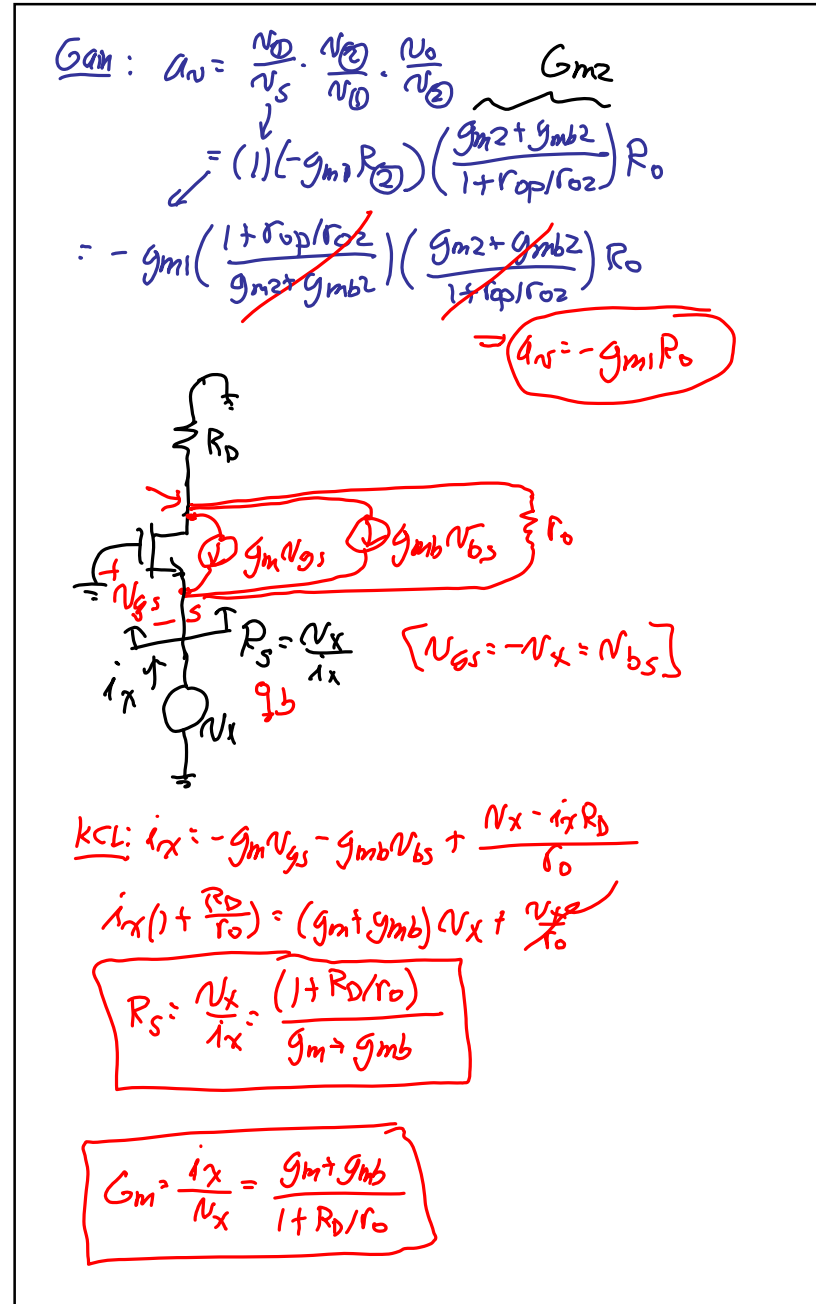 Gain: a_v = v_① / v_s · v_② / v_① · v_o / v_②
G_m2
= (1)(-g_m1 R_②)((g_m2 + g_mb2) / (1 + r_op/r_o2)) R_o
= - g_m1((1 + r_op/r_o2) / (g_m2 + g_mb2))((g_m2 + g_mb2) / (1 + r_op/r_o2)) R_o
⇒ a_v = -g_m1 R_o
R_D
g_m v_gs
g_mb v_bs
r_o
+
v_gs
- s
i_x
R_s = v_x / i_x
[v_gs = -v_x = v_bs]
gb
v_x
KCL: i_x = -g_m v_gs - g_mb v_bs + (v_x - i_x R_D) / r_o
i_x(1 + R_D/r_o) = (g_m + g_mb) v_x + v_x/r_o
R_s = v_x / i_x = (1 + R_D/r_o) / (g_m + g_mb)
G_m = i_x / v_x = (g_m + g_mb) / (1 + R_D/r_o)